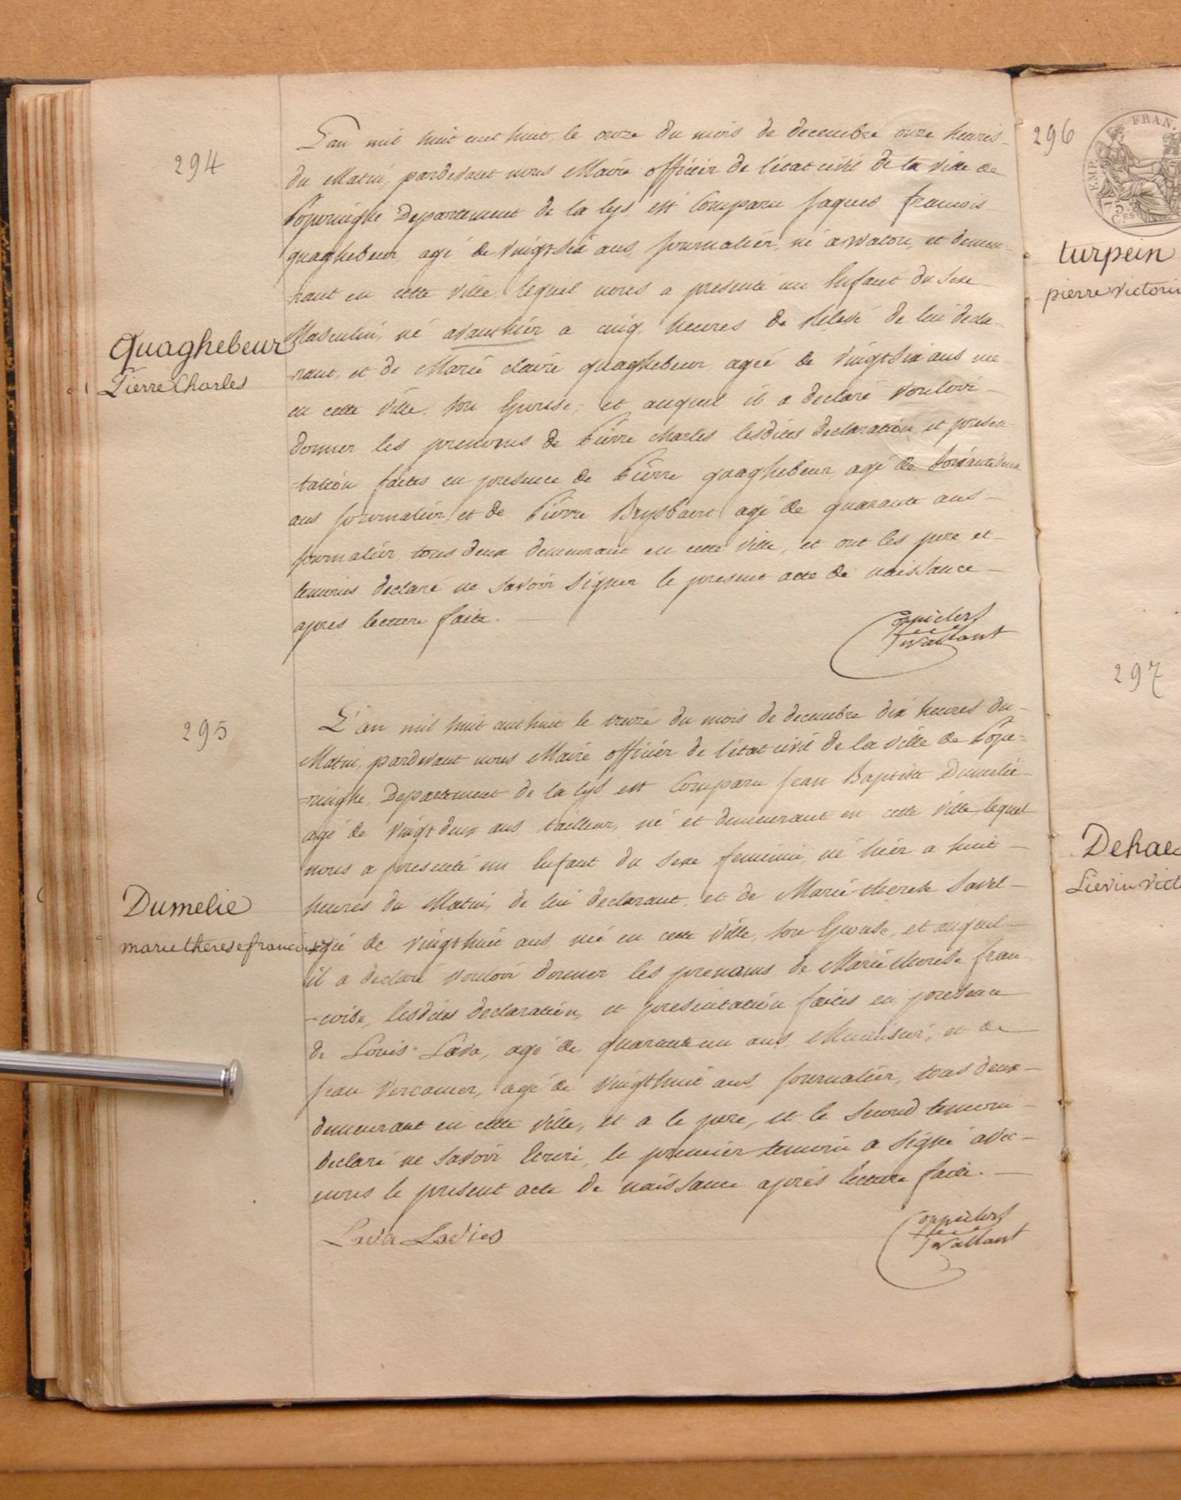 294
L'an mil huit cent huit le onze du mois de decembre onze heures
du Matin, pardevant nous Maire officier de l'état civil de la ville de
Poperinghe Departement de la Lys est Comparu Jaques francois
quaghebeur, agé de vingtsix ans, journalier, né a watou, et demeu-
rant en cette ville, lequel nous a presenté un Enfant du Sexe
Masculin, né avanthier a cinq heures de relevé de lui decla-
rant, et de Marie claire quaghebeur, agée de vingtsix ans née
en cette ville, son Epouse, et auquel il a declaré vouloir
donner les prenoms de Pierre charles lesdites declaration, et presen
-tation faites en presence de Pierre quaghebeur agé de
ans journalier, et de Pierre Brysbaert agé de quarante ans
journalier, tous deux demeurant en cette ville, et ont les pere et
temoins declaré ne savoir Signer le present acte de naissance
apres lecture faite.
Quaghebeur
Pierre Charles
295
L'an mil huit cent huit le onze du mois de decembre dix heures du
Matin, pardevant nous Maire officier de l'état civil de la ville de Pope-
-ringhe, Departement de la Lys est Comparu Jean Baptiste Dumelie
agé de vingt deux ans tailleur, né et demeurant en cette ville lequel
nous a presenté un Enfant du Sexe feminin, né hier a huit
heures du Matin, de lui declarant, et de Marie therese
agé de vingthuit ans, née en cette ville, son Epouse, et auquel
il a declaré vouloir donner les prenoms de Marie therese fran
-coise, lesdites declaration, et presentation faites en presence
de Louis Lava, agé de quarante un ans, Menuisier, et de
Jean Vercamer, agé de vingthuit ans, journalier, tous deux
demeurant en cette ville, et a le pere, et le Second temoin
declaré ne savoir Ecrire, le premier temoin a Signé avec
nous le present acte de naissance après lecture faite.
Dumelie
marie therese francoise
Lava
296
turpein
pierre victorin
297
Dehae
Lievin vict